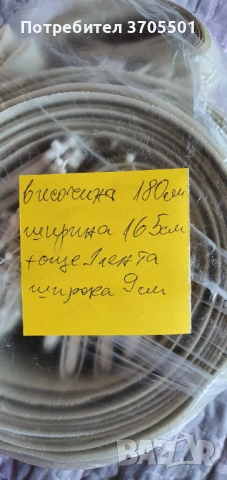 Потребител 3705501
височина 180см
ширина 165см
+още 1 лента
широка 9см
BAZAR